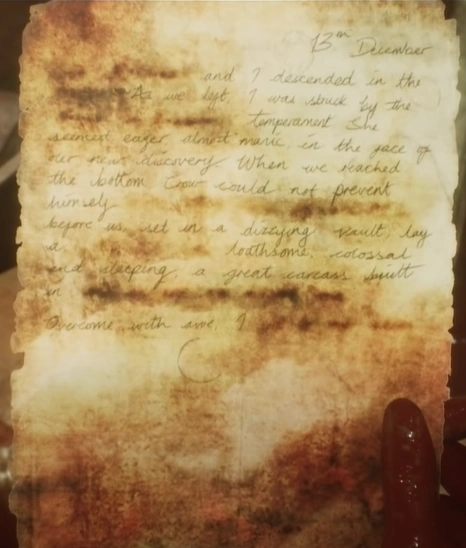 13th December
and I descended in the
As we left, I was struck by the
temperament She
seemed eager, almost manic, in the face of
our new discovery When we reached
the bottom Crow could not prevent
himself
before us, set in a dizzying vault, lay
a loathsome, colossal
and sleeping, a great carcass built
in
Overcome with awe, I